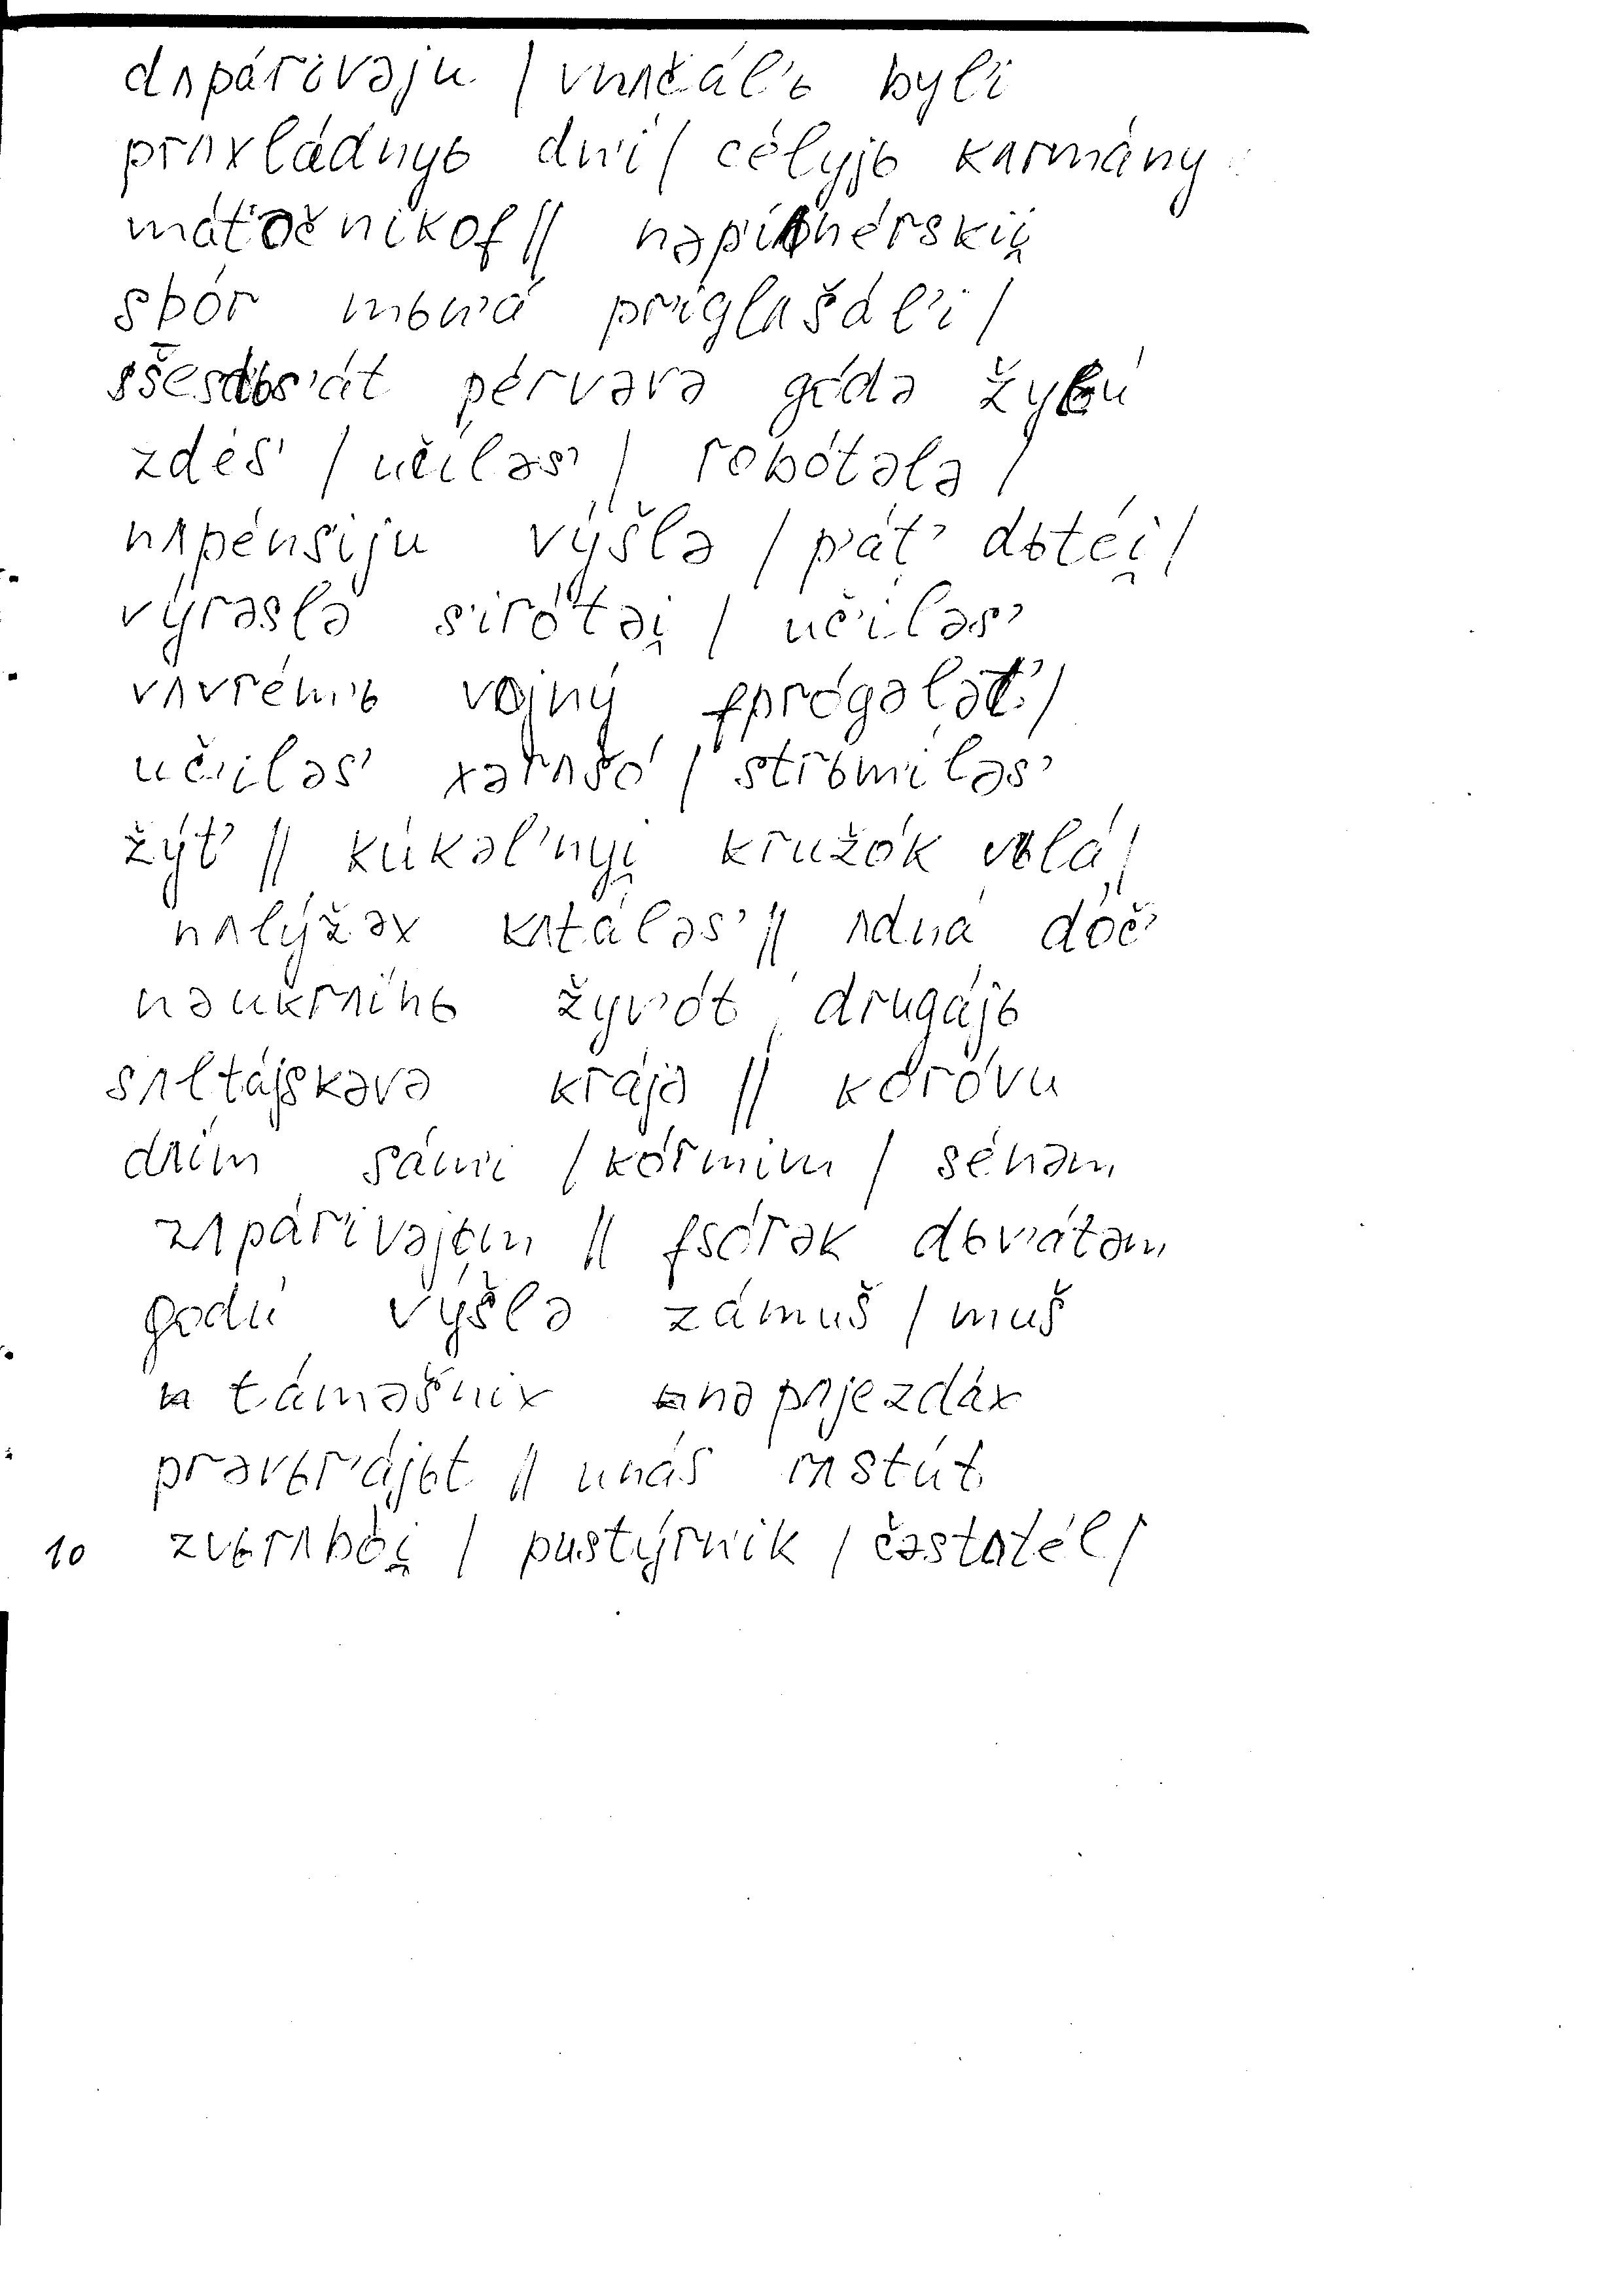 dʌpár'ivəju / vnʌčál'ь byl'i
prʌxládnyь dn'í / célyjь kʌrmány
mát'əčn'ikof // nəp'iʌn'érskii̯
sbór mьn'á pr'iglʌšál'i /
sšesdьs'át pérvəvə gódə žyvú
zd'és' / učílas' / robótələ /
nʌpéns'iju výšlə / p'át' dьtéi̯ /
výrəslə s'irótəi̯ / učíləs'
vʌvrém'ь vojný fprógələt' /
uč'íləs' xərʌšó / strьm'íləs'
žýt' // kúkəl'nyi̯ kružók vьlá /
nʌlýžəx kʌtáləs' // ʌdná dóč'
nəukrʌínь žyv'ót , drugájь
sʌltájskəvə krájə // koróvu
dʌím sám'i / kórmim / sénəm
zʌpár'ivəjьm // fsórək dьv'átəm
godú výšlə zámuš / muš
támašn'ix nəpʌjezdáx
prəvьr'ájьt // unás rʌstút
10 zvьrʌbói̯ / pustýrn'ik / častʌtél /